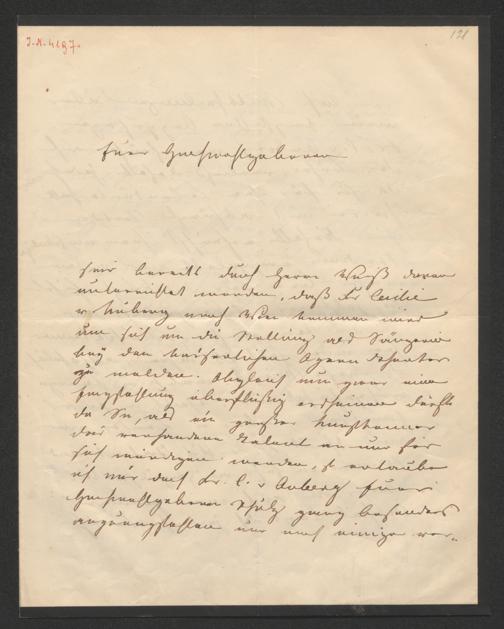 I.N. 4187.
121
Euer Hochwohlgeboren
sein bereits durch Herrn Weiß davon
unterrichtet worden, daß Fr Cecilie
v Auberg nach Wien kommen wird
um sich um die Stellung als Sängerin
bey den kaiserlichen Opern
zu melden. Obgleich nun zwar eine
Empfehlung überflüßig erscheinen dürfte
da Sie, als ein großer Kunstkenner
das vorhandene Talent an und für
sich würdigen werden, so erlaube
ich mir doch Fr. C. v Auberg Euer
Hochwohlgeboren Schutz ganz besonders
anzuempfehlen und noch einige